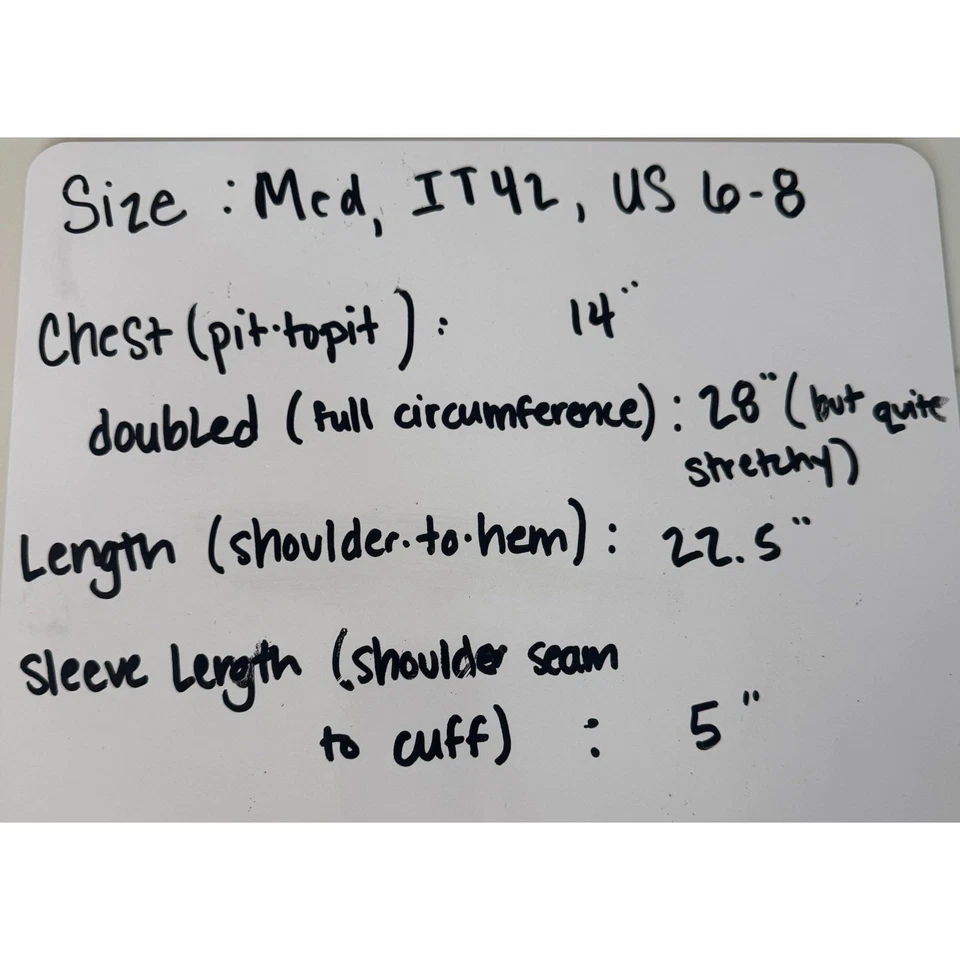 Size : Med, IT42, US 6-8
Chest (pit-to pit) : 14"
doubled (full circumference) : 28" (but quite
stretchy)
Length (shoulder-to-hem) : 22.5"
Sleeve Length (shoulder seam
to cuff) : 5"